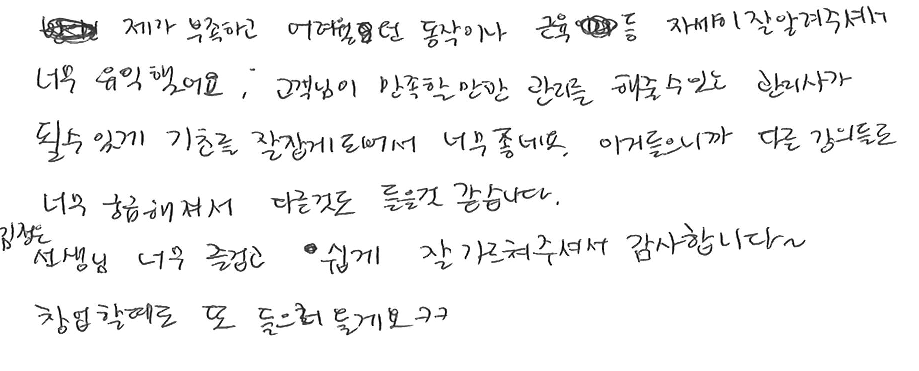 제가 부족하고 어려웠던 동작이나 근육 등 자세히 잘 알려주셔서
너무 유익했어요, 고객님이 만족할만한 관리를 해줄수있는 관리사가
될수 있게 기초를 잘잡게 되어서 너무좋네요. 이거들으니까 다른 강의들도
너무 궁금해져서 다른것도 들을것 같습니다.
김정은
선생님 너무 즐겁고 쉽게 잘 가르쳐주셔서 감사합니다~
창업할때도 또 들으러 올게요ㅋㅋ